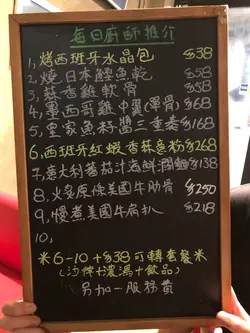 每日廚師推介
1, 烤西班牙水晶包 $38
2, 燒日本鱈魚乾 $58
3, 蒜香雞軟骨 $58
4, 墨西哥雞中翼(單骨) $68
5, 皇家魚籽醬三重奏 $168
6, 西班牙紅蝦香蒜意粉 $268
7, 意大利蕃茄汁海鮮濶麵 $138
8, 火炙原條美國牛肋骨 $250
9, 慢煮美國牛肩扒 $218
10,
※6-10 +$38 可轉套餐米
(沙律+濃湯+飲品)
另加一服務費